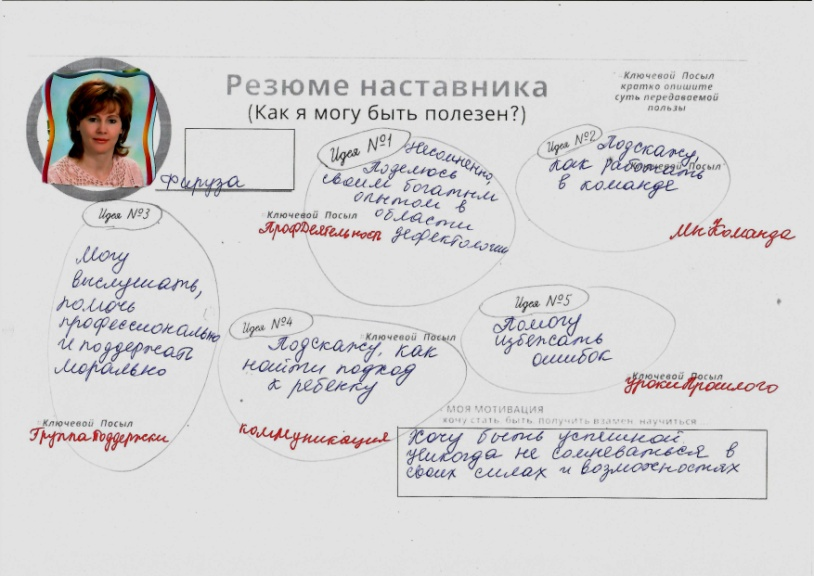 Резюме наставника
(Как я могу быть полезен?)
Ключевой Посыл
кратко опишите
суть передаваемой
пользы
Фируза
Идея №1
Несомненно,
Поделюсь
своим богатым
опытом в
области
дефектологии
Ключевой Посыл
ПрофДеятельность
Идея №2
Подскажу,
как работать
в команде
Ключевой Посыл
МыКоманда
Идея №3
Могу
выслушать,
помочь
профессионально
и поддержать
морально
Ключевой Посыл
ГруппаПоддержки
Идея №4
Подскажу, как
найти подход
к ребенку
Ключевой Посыл
коммуникация
Идея №5
Помогу
избежать
ошибок
Ключевой Посыл
урокиПрошлого
МОЯ МОТИВАЦИЯ
хочу стать, быть, получить взамен, научиться ...
Хочу быть успешной
Никогда не сомневаться в
своих силах и возможностях